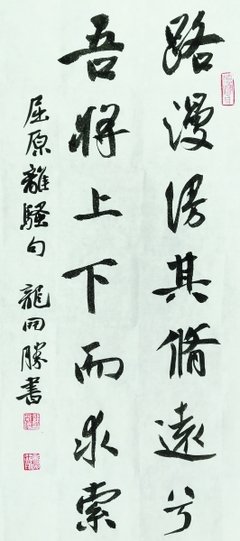 路漫漫其脩遠兮
吾將上下而求索
屈原離騷句 龍回勝書